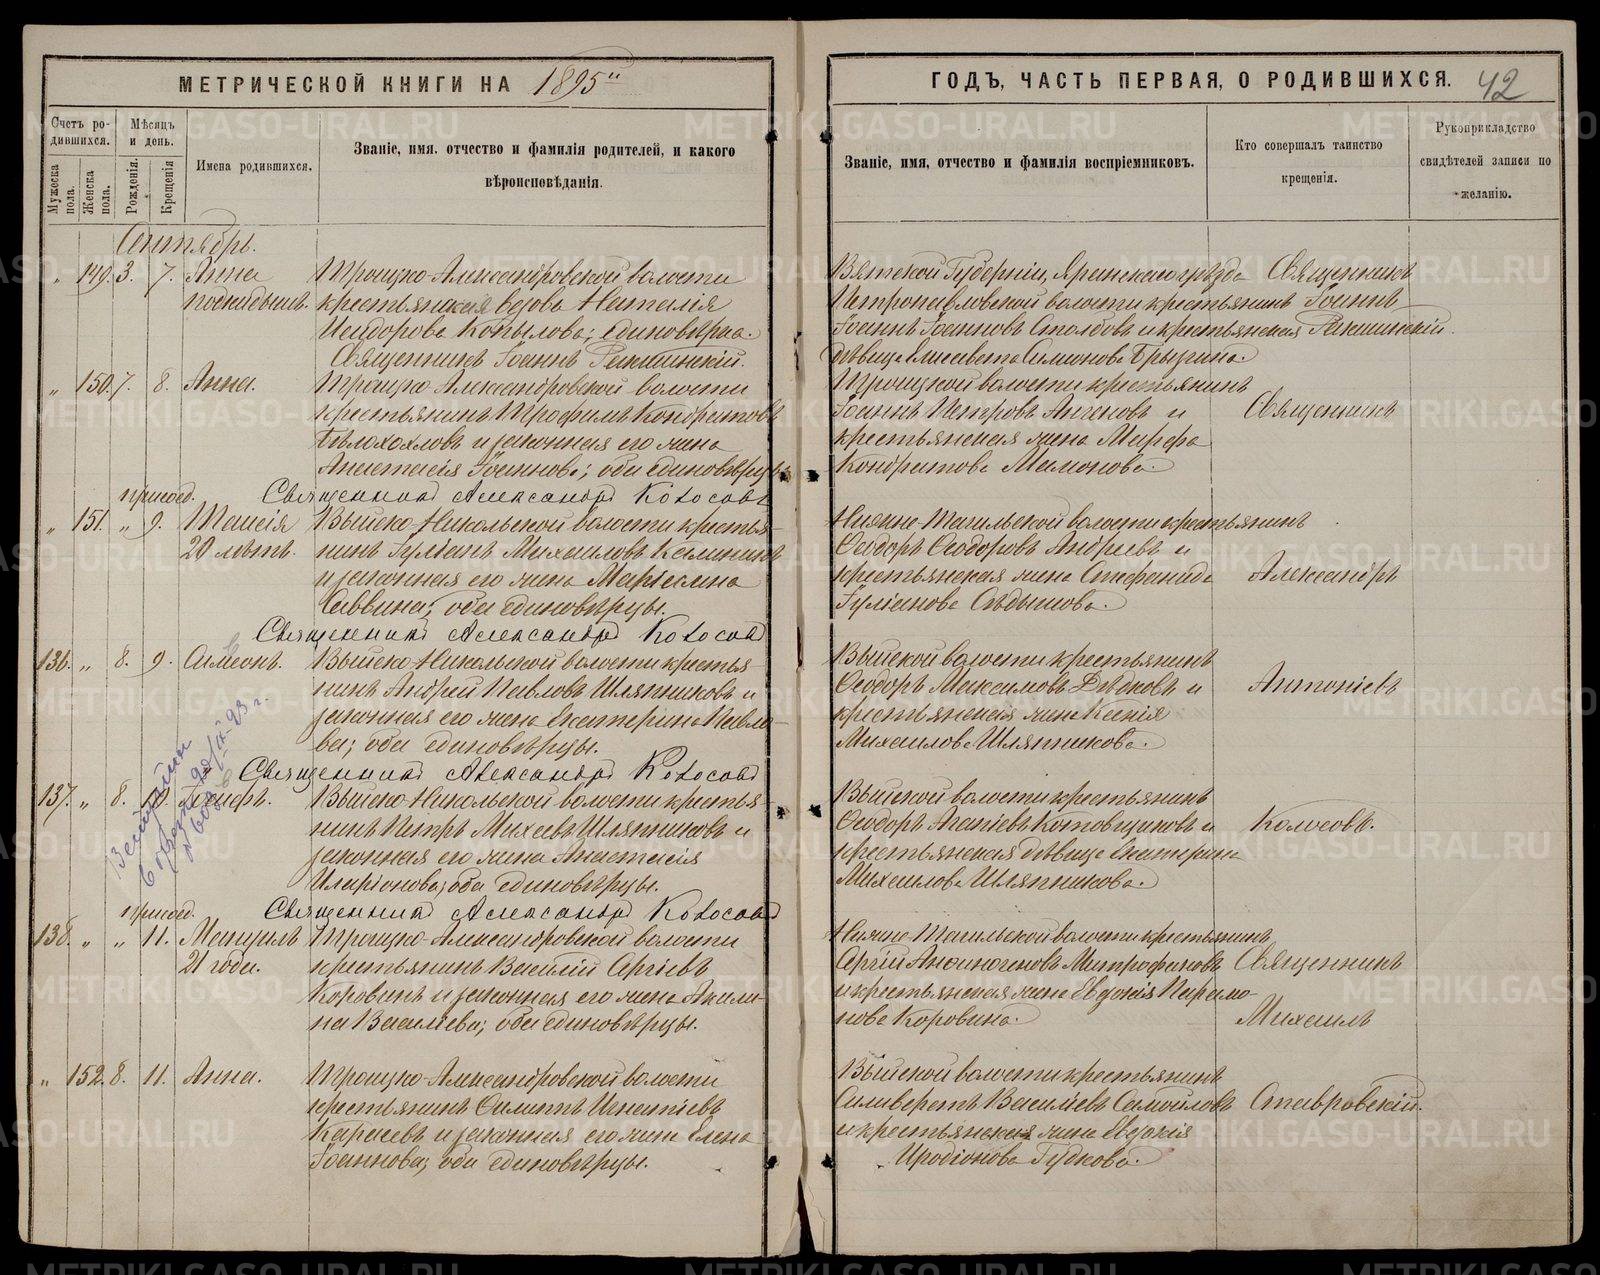 МЕТРИЧЕСКОЙ КНИГИ НА 1895й
Счетъ родившихся.
Мѣсяцъ и день.
Мужеска пола.
Женска пола.
Рожденія.
Крещенія
Имена родившихся.
Званіе, имя, отчество и фамилія родителей, и какого
вѣроисповѣданія.
Сентябрь.
„ 149. 3. 7. Анна
покидышъ.
Троицко-Александровской волости
крестьянская вдова Наталія
Исидорова Копылова; единовѣрка.
Священникъ Іоаннъ
„ 150. 7. 8. Анна.
Троицко-Александровской волости
крестьянинъ Трофимъ Кондратовъ
Бѣлохохловъ и законная его жена
Анастасія Іоаннова; оба единовѣрцы.
Священникъ Александръ Колосовъ
присоед.
„ 151. „ 9. Таисія
20 лѣтъ.
Выйско-Никольской волости крестья-
нинъ Гуліанъ Михаиловъ Калининъ
и законная его жена Маріамна
Саввина; оба единовѣрцы.
Священникъ Александръ Колосовъ
136. „ 8. 9. Симеонъ.
Выйско-Никольской волости крестья-
нинъ Андрей Павловъ Шляпниковъ и
законная его жена Екатерина Павло-
ва; оба единовѣрцы.
Священникъ Александръ Колосовъ
137. „ 8. 10. Іосифъ.
Выйско-Никольской волости крестья-
нинъ Петръ Михеевъ Шляпниковъ и
законная его жена Анастасія
Иларіонова; оба единовѣрцы.
Священникъ Александръ Колосовъ
присоед.
138. „ „ 11. Мануилъ
21 года.
Троицко-Александровской волости
крестьянинъ Василій Сергіевъ
Коровинъ и законная его жена Акили-
на Василіева; оба единовѣрцы.
„ 152. 8. 11. Анна.
Троицко-Александровской волости
крестьянинъ Филиппъ Игнатіевъ
Карасевъ и законная его жена Елена
Іоаннова; оба единовѣрцы.
ГОДЪ, ЧАСТЬ ПЕРВАЯ, О РОДИВШИХСЯ. 42
Званіе, имя, отчество и фамилія воспріемниковъ.
Кто совершалъ таинство
крещенія.
Рукоприкладство
свидѣтелей записи по
желанію.
Вятской Губерніи, Яранскаго уѣзда
Петропавловской волости крестьянинъ
Іоаннъ Іоанновъ Столбовъ и крестьянская
дѣвица Елисавета Симонова Брызгина.
Священникъ
Іоаннъ
Троицкой волости крестьянинъ
Іоаннъ Петровъ и
крестьянская жена Марфа
Кондратова Мамонова.
Священникъ
Нижне-Тагильской волости крестьянинъ
Ѳеодоръ Ѳеодоровъ Андреевъ и
крестьянская жена Стефанида
Гуліанова Сѣдышова.
Александръ
Выйской волости крестьянинъ
Ѳеодоръ Максимовъ Дѣдковъ и
крестьянская жена Ксенія
Михаилова Шляпникова.
Антоніевъ
Выйской волости крестьянинъ
Ѳеодоръ Агапіевъ Котовщиковъ и
крестьянская дѣвица Екатерина
Михаилова Шляпникова.
Колосовъ.
Нижне-Тагильской волости крестьянинъ
Сергій Аѳиногеновъ Митрофановъ
и крестьянская жена Евдокія Парамо-
нова Коровина.
Священникъ
Михаилъ
Выйской волости крестьянинъ
Сильверстъ Василіевъ Самойловъ
и крестьянская жена Евдокія
Иродіонова Гудкова.
Ставровскій.
METRIKI.GASO-URAL.RU